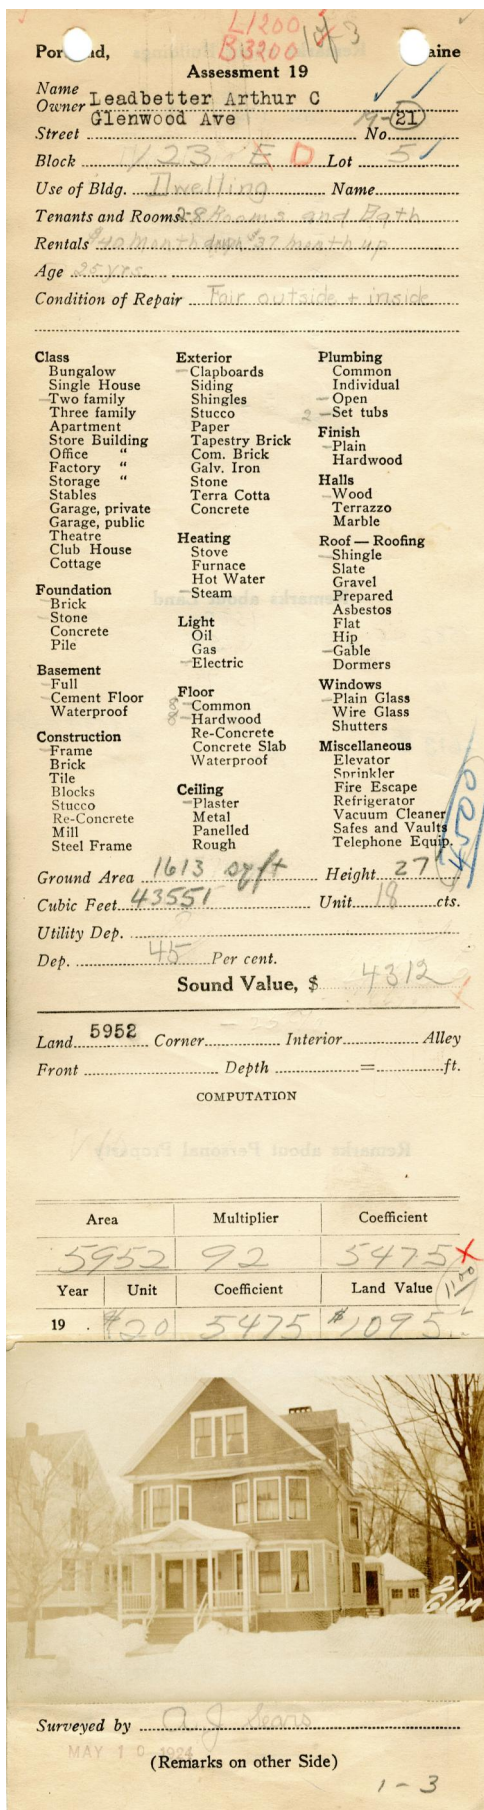 L1200
B3200
Portland, Maine
Assessment 19
Name
Owner Leadbetter Arthur C
Glenwood Ave 21
Street No.
Block 123 E D Lot 5
Use of Bldg. Dwelling Name
Tenants and Rooms 2-8 Rooms and Bath
Rentals $40 month $37 month up
Age 25 yrs.
Condition of Repair Fair outside + inside
Class
Bungalow
Single House
Two family
Three family
Apartment
Store Building
Office "
Factory "
Storage "
Stables
Garage, private
Garage, public
Theatre
Club House
Cottage
Foundation
Brick
Stone
Concrete
Pile
Basement
Full
Cement Floor
Waterproof
Construction
Frame
Brick
Tile
Blocks
Stucco
Re-Concrete
Mill
Steel Frame
Exterior
Clapboards
Siding
Shingles
Stucco
Paper
Tapestry Brick
Com. Brick
Galv. Iron
Stone
Terra Cotta
Concrete
Heating
Stove
Furnace
Hot Water
Steam
Light
Oil
Gas
Electric
Floor
8 Common
8 Hardwood
Re-Concrete
Concrete Slab
Waterproof
Ceiling
Plaster
Metal
Panelled
Rough
Plumbing
Common
Individual
Open
2 Set tubs
Finish
Plain
Hardwood
Halls
Wood
Terrazzo
Marble
Roof — Roofing
Shingle
Slate
Gravel
Prepared
Asbestos
Flat
Hip
Gable
Dormers
Windows
Plain Glass
Wire Glass
Shutters
Miscellaneous
Elevator
Sprinkler
Fire Escape
Refrigerator
Vacuum Cleaner
Safes and Vaults
Telephone Equip.
Ground Area 1613 sq ft Height 27'
Cubic Feet 43551 Unit 18 cts.
Utility Dep.
Dep. 45 Per cent.
Sound Value, $ 4312
Land 5952 Corner Interior Alley
Front Depth = ft.
COMPUTATION
Remarks about Personal Property
Area Multiplier Coefficient
5952 92 5475
Year Unit Coefficient Land Value 1100
19 . $20 5475 $1095
Surveyed by A J Sears
MAY 10 1924
(Remarks on other Side)
1-3